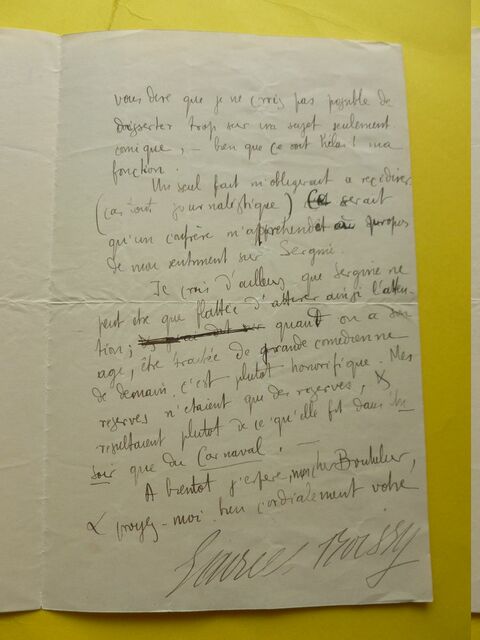 vous dire que je ne crois pas possible de
disserter trop sur un sujet seulement
comique, – bien que ce soit hélas! ma
fonction.
Un seul fait m'obligerait a recidiver
(cas tout journalistique) Ce serait
qu'un confrère m'appréhendât à propos
de mon sentiment sur Sergine.
Je crois d'ailleurs que Sergine ne
peut être que flattée d'attirer ainsi l'atten-
tion; quand on a son
age, être traitée de grande comedienne
de demain, c'est plutot honorifique. Mes
reserves n'etaient que des reserves, &
resultaient plutot de ce qu'elle fit dans
soir que du Carnaval. –
A bientot j'espere, mon cher
& croyez-moi bien cordialement votre